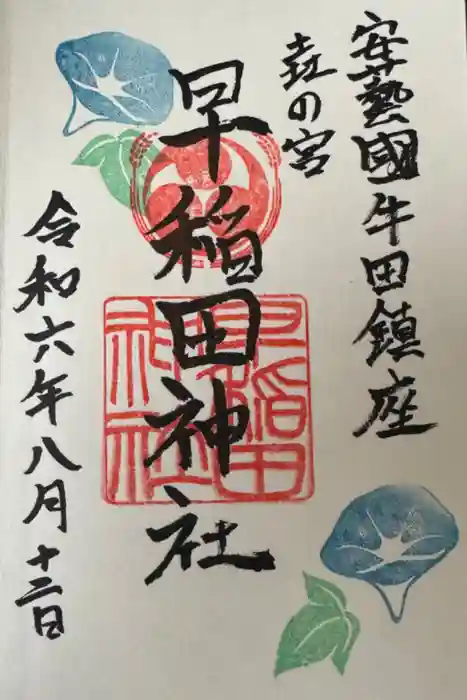 安藝國牛田鎮座
㐂の宮
早稲田神社
早稲田神社
令和六年八月十二日